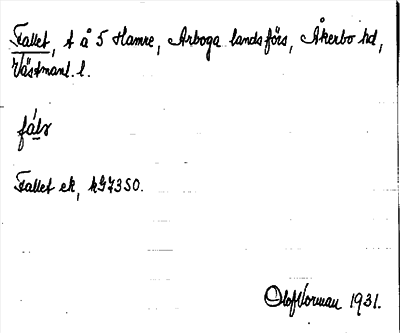 Fallet, t å 5 Hamre, Arboga landsförs, Åkerbo hd,
Västmanl. l.
fálə
Fallet ek, kG7350.
Olof Norman 1931.